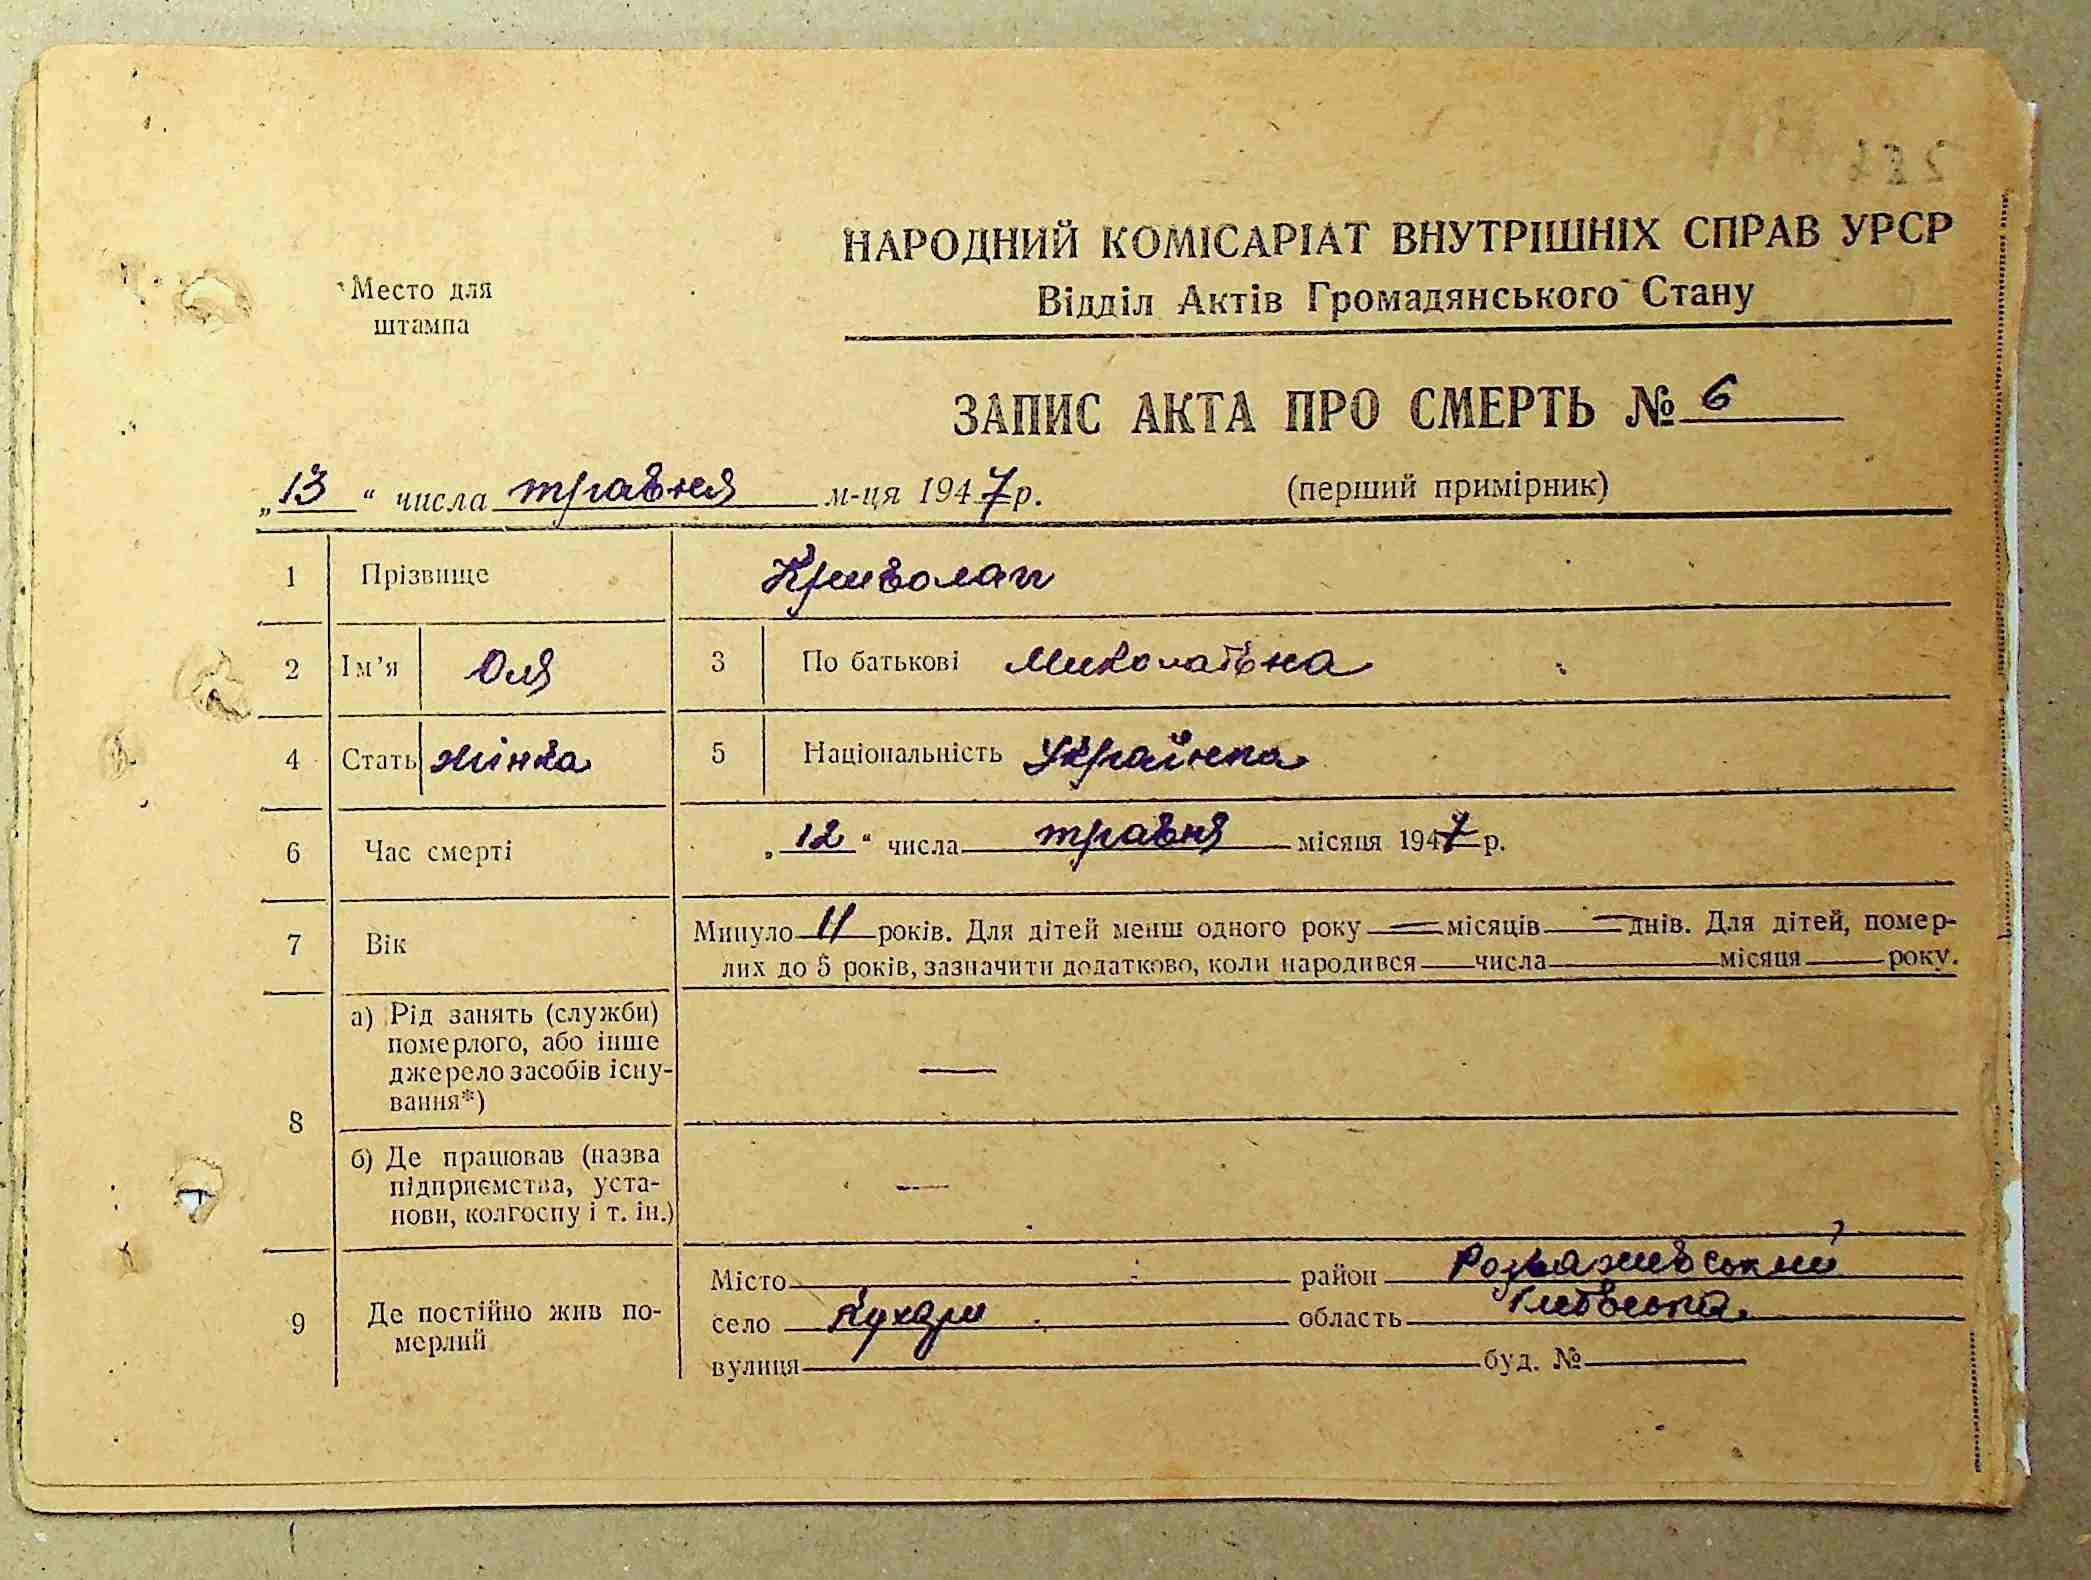 Место для
штампа
НАРОДНИЙ КОМІСАРІАТ ВНУТРІШНІХ СПРАВ УРСР
Відділ Актів Громадянського Стану
ЗАПИС АКТА ПРО СМЕРТЬ № 6
„13“ числа травня м-ця 1947 р. (перший примірник)
1 Прізвище Криволап
2 Ім’я Оля 3 По батькові Миколаївна
4 Стать жінка 5 Національність Українка
6 Час смерті „12“ числа травня місяця 1947 р.
7 Вік Минуло 11 років. Для дітей менш одного року — місяців — днів. Для дітей, помер-
лих до 5 років, зазначити додатково, коли народився числа місяця року.
8 а) Рід занять (служби)
померлого, або інше
джерело засобів існу-
вання*) —
б) Де працював (назва
підприємства, уста-
нови, колгоспу і т. ін.) —
9 Де постійно жив по-
мерлий
Місто район Розважівський
село Кухари область Київська
вулиця буд. №